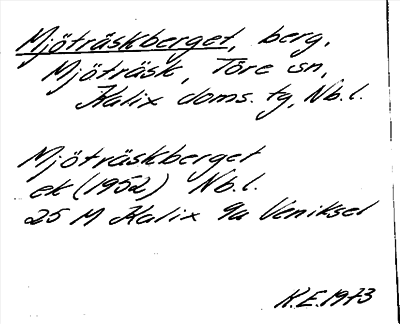 Mjöträskberget, berg,
Mjöträsk, Töre sn,
Kalix doms. tg, Nb.l.
Mjöträskberget
ek (1952) Nb.l.
25 M Kalix 9a Veniksel
K.E. 1973